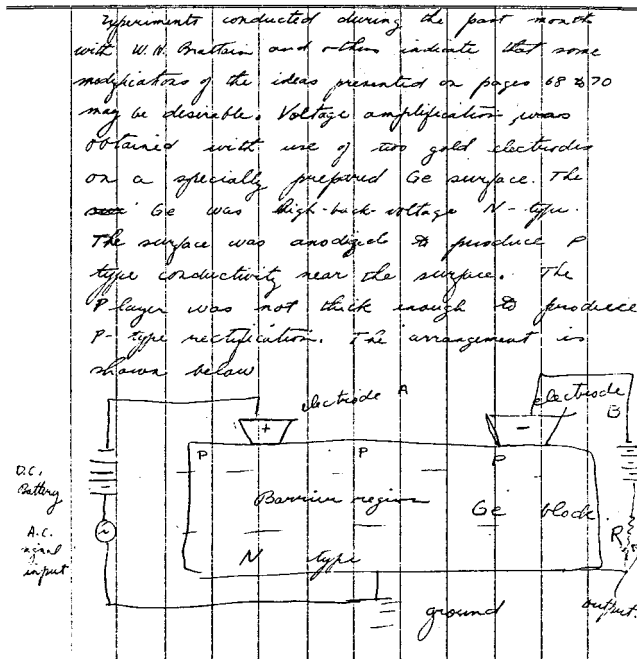 Experiments conducted during the past month
with W.H. Brattain and others indicate that some
modifications of the ideas presented on pages 68 to 70
may be desirable. Voltage amplification was
obtained with use of two gold electrodes
on a specially prepared Ge surface. The
Ge was high-back-voltage N-type.
The surface was anodized to produce P
type conductivity near the surface. The
P layer was not thick enough to produce
P-type rectification. The arrangement is
shown below
electrode A
electrode B
+
-
P P P
D.C. Battery
Barrier region
Ge block
A.C. signal input
N type
R
ground
output.